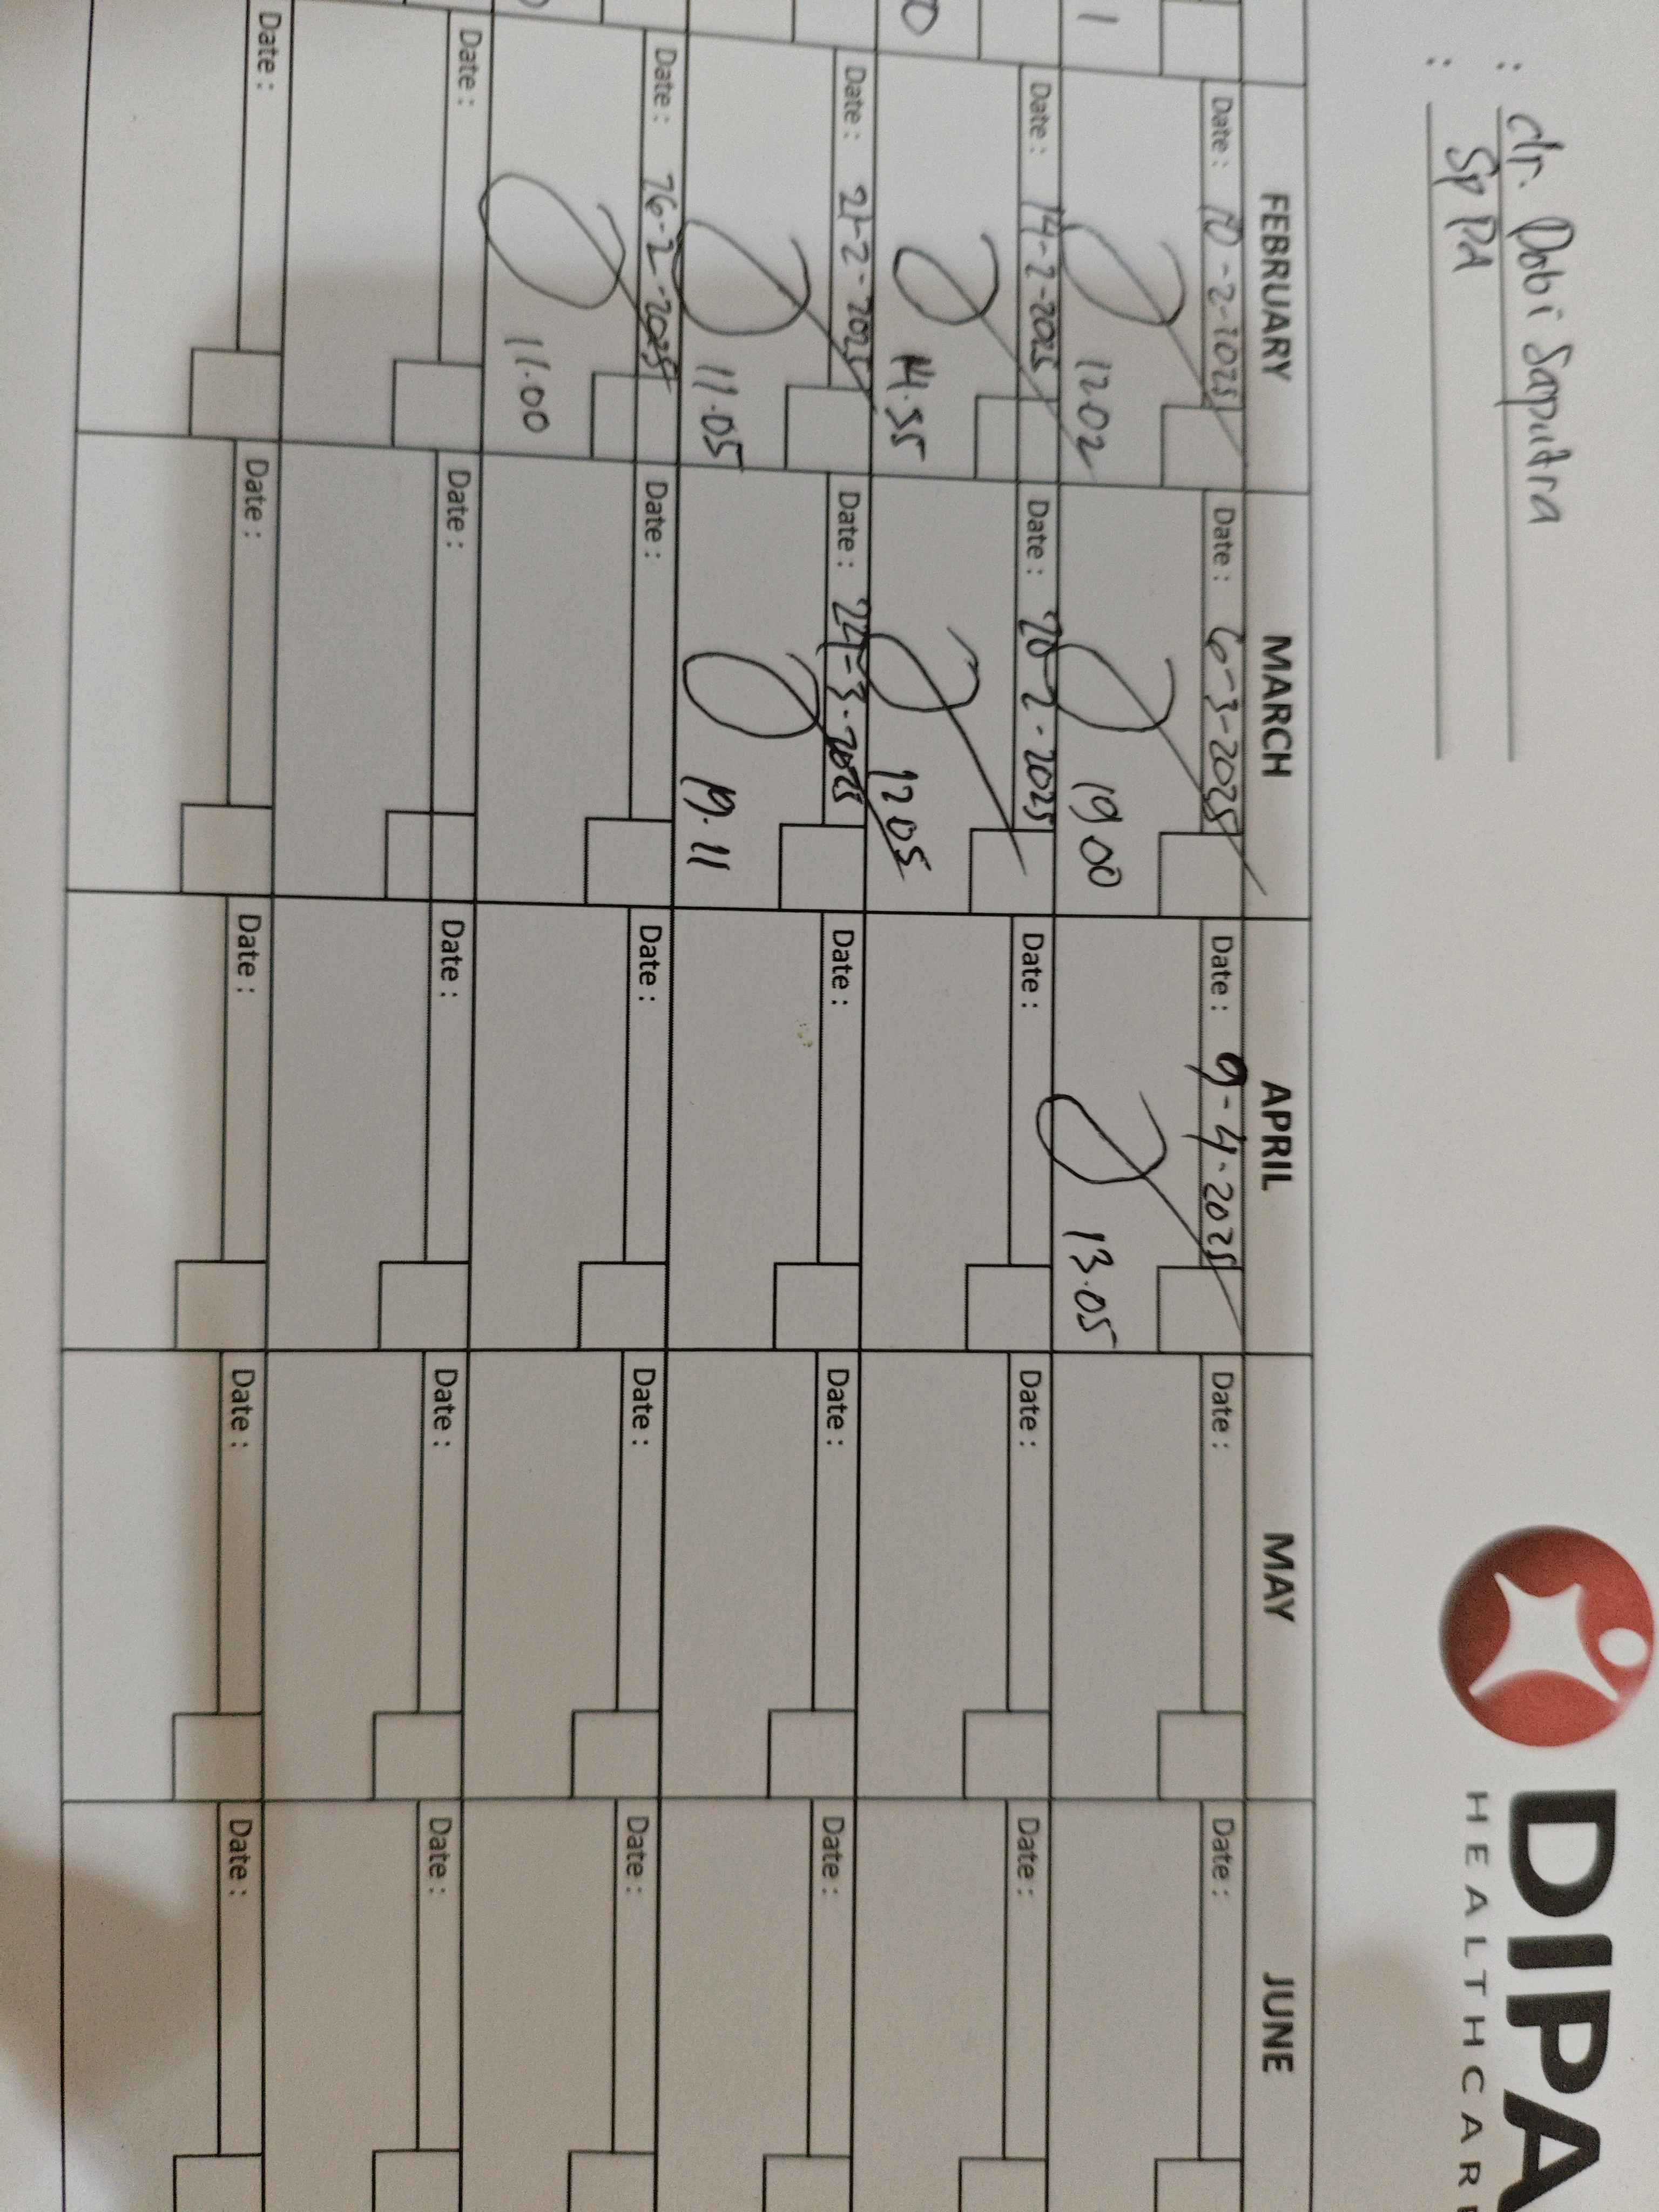 : dr. Dobi Saputra
: Sp PA
DIPA
HEALTHCAR
FEBRUARY MARCH APRIL MAY JUNE
Date : 10-2-2025 Date : 6-3-2025 Date : 9-4-2025 Date : Date :
1 12.02 19.00 13.05
Date : 14-2-2025 Date : 20-2-2025 Date : Date : Date :
14.55 12.05
Date : 21-2-2025 Date : 22-3-2025 Date : Date : Date :
11.05 19.11
Date : 26-2-2025 Date : Date : Date : Date :
11.00
Date : Date : Date : Date : Date :
Date : Date : Date : Date : Date :